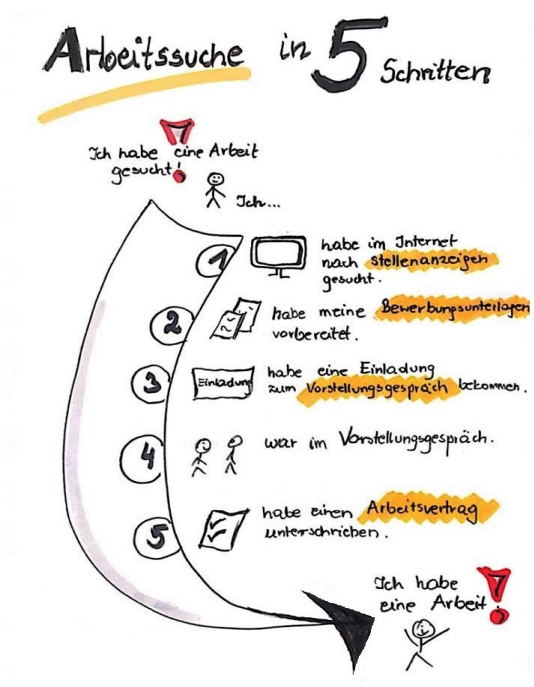 Arbeitssuche in 5 Schritten
Ich habe eine Arbeit
gesucht!
Ich...
1
habe im Internet
nach Stellenanzeigen
gesucht.
2
habe meine Bewerbungsunterlagen
vorbereitet.
3
Einladung
habe eine Einladung
zum Vorstellungsgespräch bekommen.
4
war im Vorstellungsgespräch.
5
habe einen Arbeitsvertrag
unterschrieben.
Ich habe
eine Arbeit!